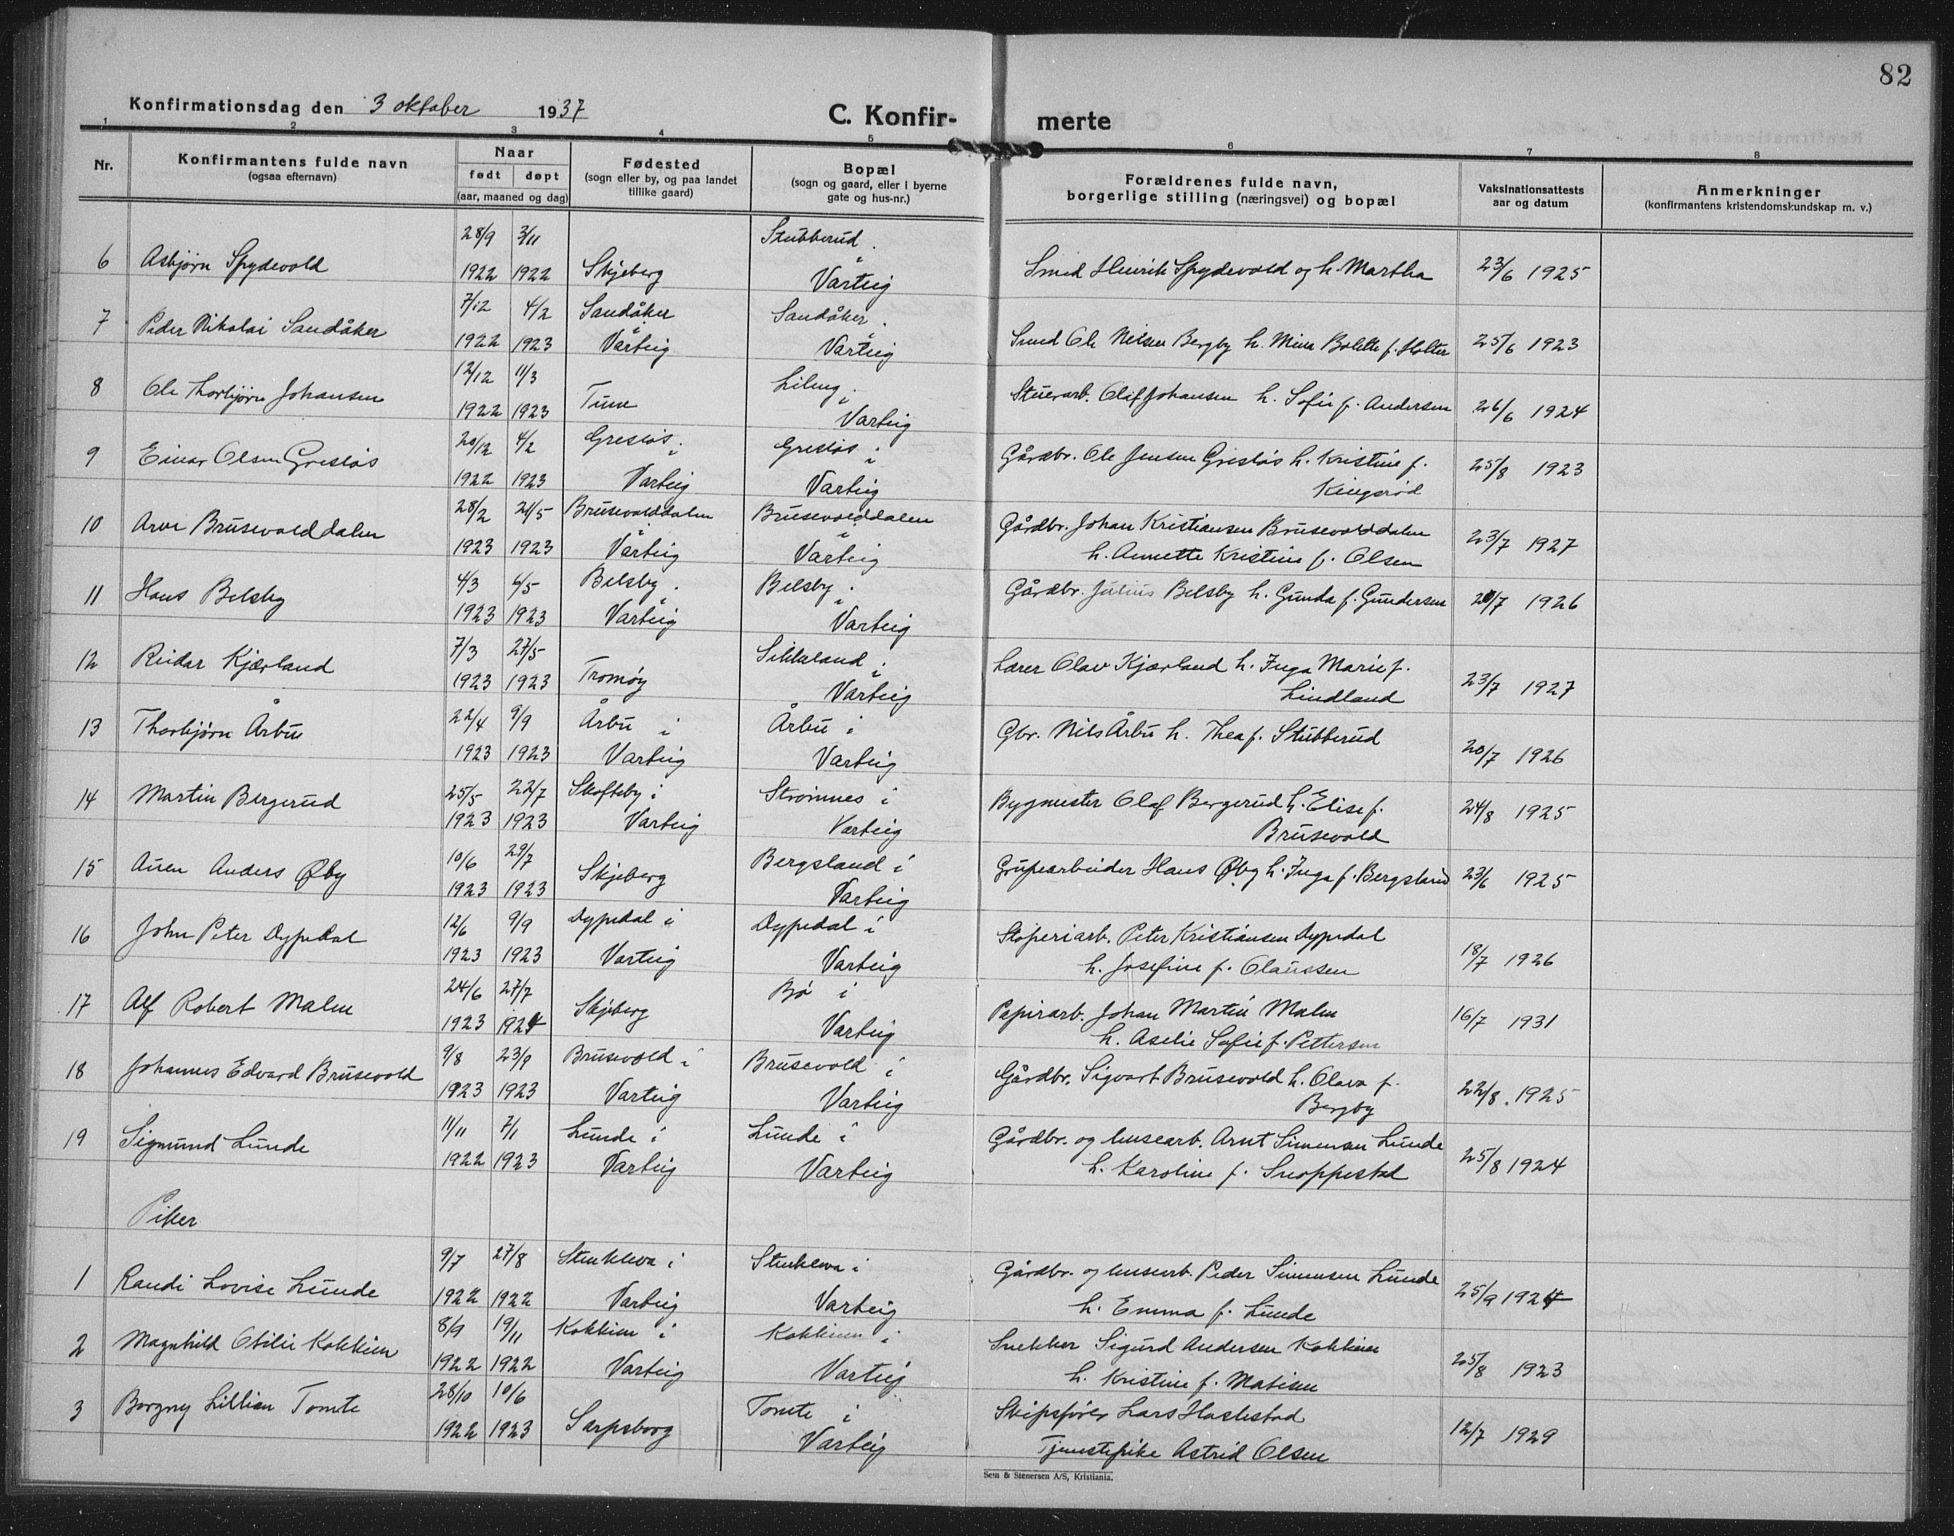 82
Konfirmationsdag den 3 oktober 1937
C. Konfirmerte
1 2 3 4 5 6 7 8
Nr.
Konfirmantens fulde navn
(ogsaa efternavn)
Naar
født døpt
(aar, maaned og dag)
Fødested
(sogn eller by, og paa landet
tillike gaard)
Bopæl
(sogn og gaard, eller i byerne
gate og hus-nr.)
Forældrenes fulde navn,
borgerlige stilling (næringsvei) og bopæl
Vaksinationsattests
aar og datum
Anmerkninger
(konfirmantens kristendomskundskap m. v.)
28/9 3/11 Stubberud i
6 Asbjørn Spydevold 1922 1922 Skjeberg Varteig Smed Henrik Spydevold og h. Martha 23/6 1925
7/12 4/2 Sandåker i Sandåker i
7 Peder Nikolai Sandåker 1922 1923 Varteig Varteig Smed Ole Nilsen Bergby h. Mina Bolette f. Holter 25/6 1923
12/12 11/3 i
8 Ole Thorbjørn Johansen 1922 1923 Tune Varteig Stuerarb. Olif Johansen h. Sofie f. Andersen 26/6 1924
20/12 4/2 Gresløs i Gresløs i Gårdbr. Ole Jensen Gresløs h. Kristine f.
9 Einar Olsen Gresløs 1922 1923 Varteig Varteig Kingsrød 25/8 1923
28/2 21/5 Brusevolddalen i Brusevolddalen i Gårdbr. Johan Kristiansen Brusevolddalen
10 Arve Brusevolddalen 1923 1923 Varteig Varteig h. Annette Kristine f. Olsen 23/7 1927
4/3 6/5 Belsby i Belsby i Gårdbr. Julius Belsby h. Gunda f. Gundersen
11 Hans Belsby 1923 1923 Varteig Varteig /7 1926
7/3 27/5 i Lærer Olav Kjærland h. Inga Marie f.
12 Reidar Kjærland 1923 1923 Tromøy Varteig Lindland 23/7 1927
22/4 9/9 Årbu i Årbu i Gbr. Nils Årbu h. Thea f. Stubberud
13 Thorbjørn Årbu 1923 1923 Varteig Varteig 20/7 1926
25/5 22/7 Skofteby i Strømnes i Bygmester Olaf Bergerud h. Elise f.
14 Martin Bergerud 1923 1923 Varteig Varteig Brusevold 24/8 1925
10/6 29/7 Bergsland i
15 Anders Øby 1923 1923 Skjeberg Varteig Grupearbeider Hans Øby h. Inga f. Bergsland 23/6 1925
12/6 9/9 Dypedal i Dypedal i Støperiarb. Peter Kristiansen Dypedal
16 John Peter Dypedal 1923 1923 Varteig Varteig h. Josefine f. Claussen 18/7 1926
24/6 27/7 Bø i Papirarb. Johan Martin Malm
17 Alf Robert Malm 1923 1924 Skjeberg Varteig h. Aselie Sofie f. Pettersen 16/7 1931
9/8 23/9 Brusevold i Brusevold i Gårdbr. Sigvart Brusevold h. Olava f.
18 Johannes Edvard Brusevold 1923 1923 Varteig Varteig Bergby 22/8 1925
11/11 7/1 Lunde i Lunde i Gårdbr. og busearb. Arnt Simensen Lunde
19 Sigmund Lunde 1922 1923 Varteig Varteig h. Karoline f. Snoppestad 25/8 1924
Piker
9/7 27/8 Stenkleva i Stenkleva i Gårdbr. og busearb. Peder Simensen Lunde
1 Randi Lovise Lunde 1922 1922 Varteig Varteig h. Emma f. Lunde 25/9 1924
8/9 19/11 Kokkim i Kokkim i Snekker Sigurd Andersen Kokkim
2 Magnhild Otilie Kokkim 1922 1922 Varteig Varteig h. Kristine f. Matisen 25/8 1923
28/10 10/6 Tomte i Skipsfører Lars Haslestad
3 Borgny Lillian Tomte 1922 1923 Sarpsborg Varteig Tjenestepike Astrid Olsen 12/7 1929
Sem & Stenersen A/S, Kristiania.